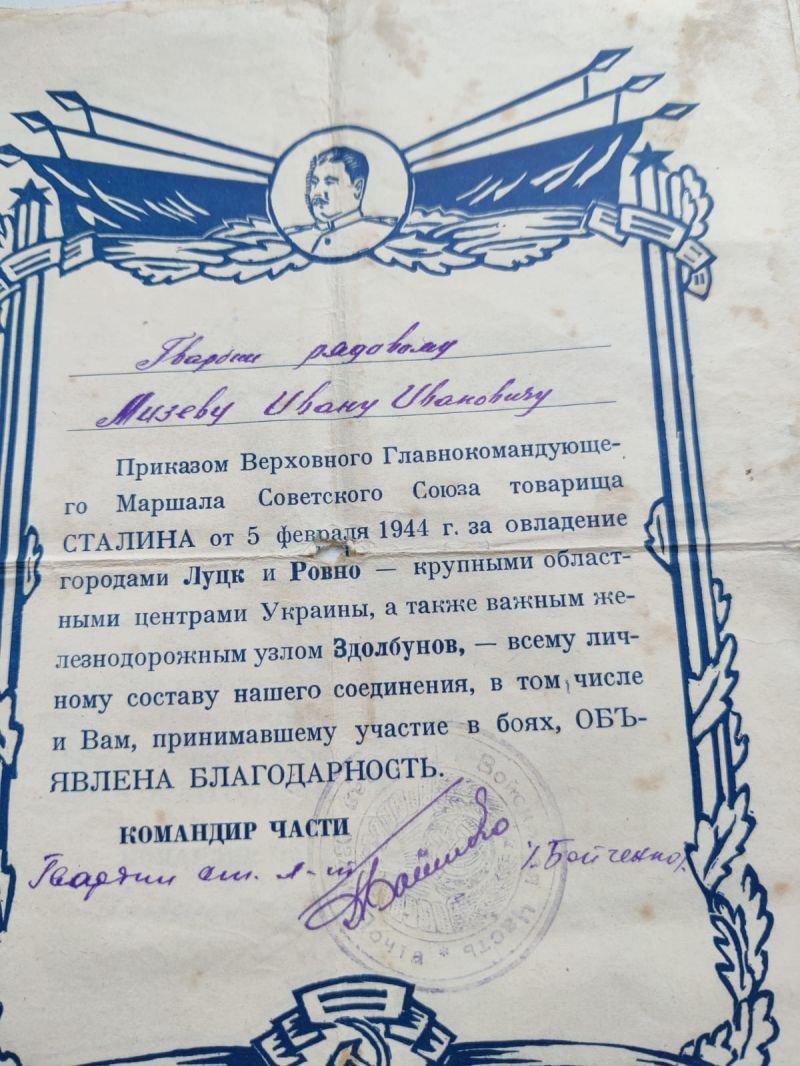 Гвардии рядовому
Мизеву Ивану Ивановичу
Приказом Верховного Главнокомандующе-
го Маршала Советского Союза товарища
СТАЛИНА от 5 февраля 1944 г. за овладение
городами Луцк и Ровно — крупными област-
ными центрами Украины, а также важным же-
лезнодорожным узлом Здолбунов, — всему лич-
ному составу нашего соединения, в том числе
и Вам, принимавшему участие в боях, ОБЪ-
ЯВЛЕНА БЛАГОДАРНОСТЬ.
КОМАНДИР ЧАСТИ
Гвардии ст. л-т
/Бойченко/
Войсковая часть